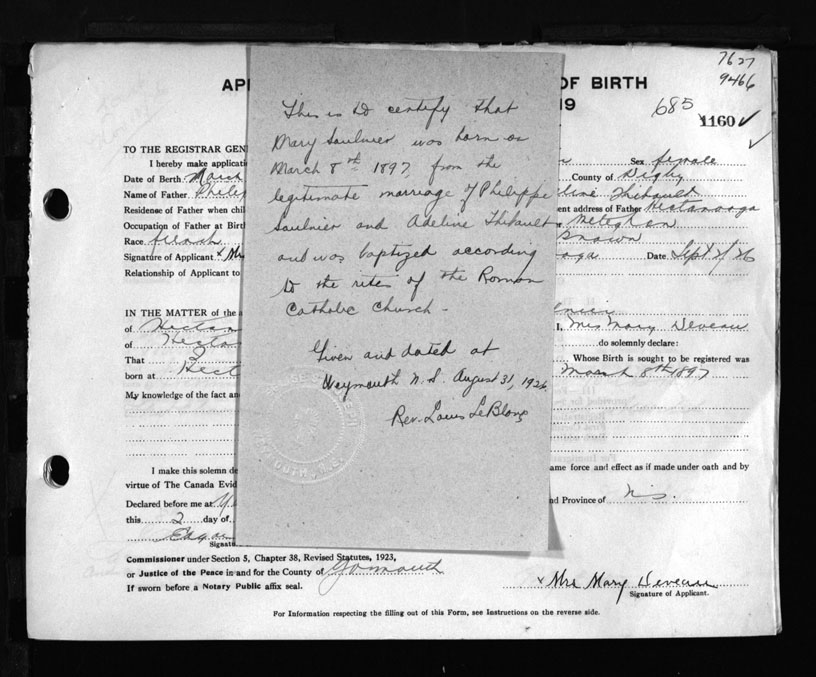 7627
9466
AP
OF BIRTH
19
685
1160 ✓
This is to certify that
Mary Saulnier was born on
March 8th 1897, from the
legitimate marriage of Philippe
Saulnier and Adeline Thibault
and was baptized according
to the rites of the Roman
Catholic Church -
Given and dated at
Weymouth N.S. August 31, 1926
Rev. Louis LeBlanc
TO THE REGISTRAR GENE
I hereby make applicati
Sex female
Date of Birth March
County of Digby
Name of Father Philip
Thibault
Residense of Father when chil
ent address of Father Hectanooga
Occupation of Father at Birth
Meteghan
Race french
Signature of Applicant x Mrs
Date Sept 2/26
Relationship of Applicant to
IN THE MATTER of the a
of
I, Mrs Mary Deveau
of
do solemnly declare:
That
Whose Birth is sought to be registered was
born at Hect
March 8th 1897
My knowledge of the fact an
I make this solemn de
ame force and effect as if made under oath and by
virtue of The Canada Evid
Declared before me at
nd Province of N.S.
this 2 day of
Signatu
Commissioner under Section 5, Chapter 38, Revised Statutes, 1923,
or Justice of the Peace in and for the County of Yarmouth
If sworn before a Notary Public affix seal.
x Mrs Mary Deveau
Signature of Applicant.
For Information respecting the filling out of this Form, see Instructions on the reverse side.